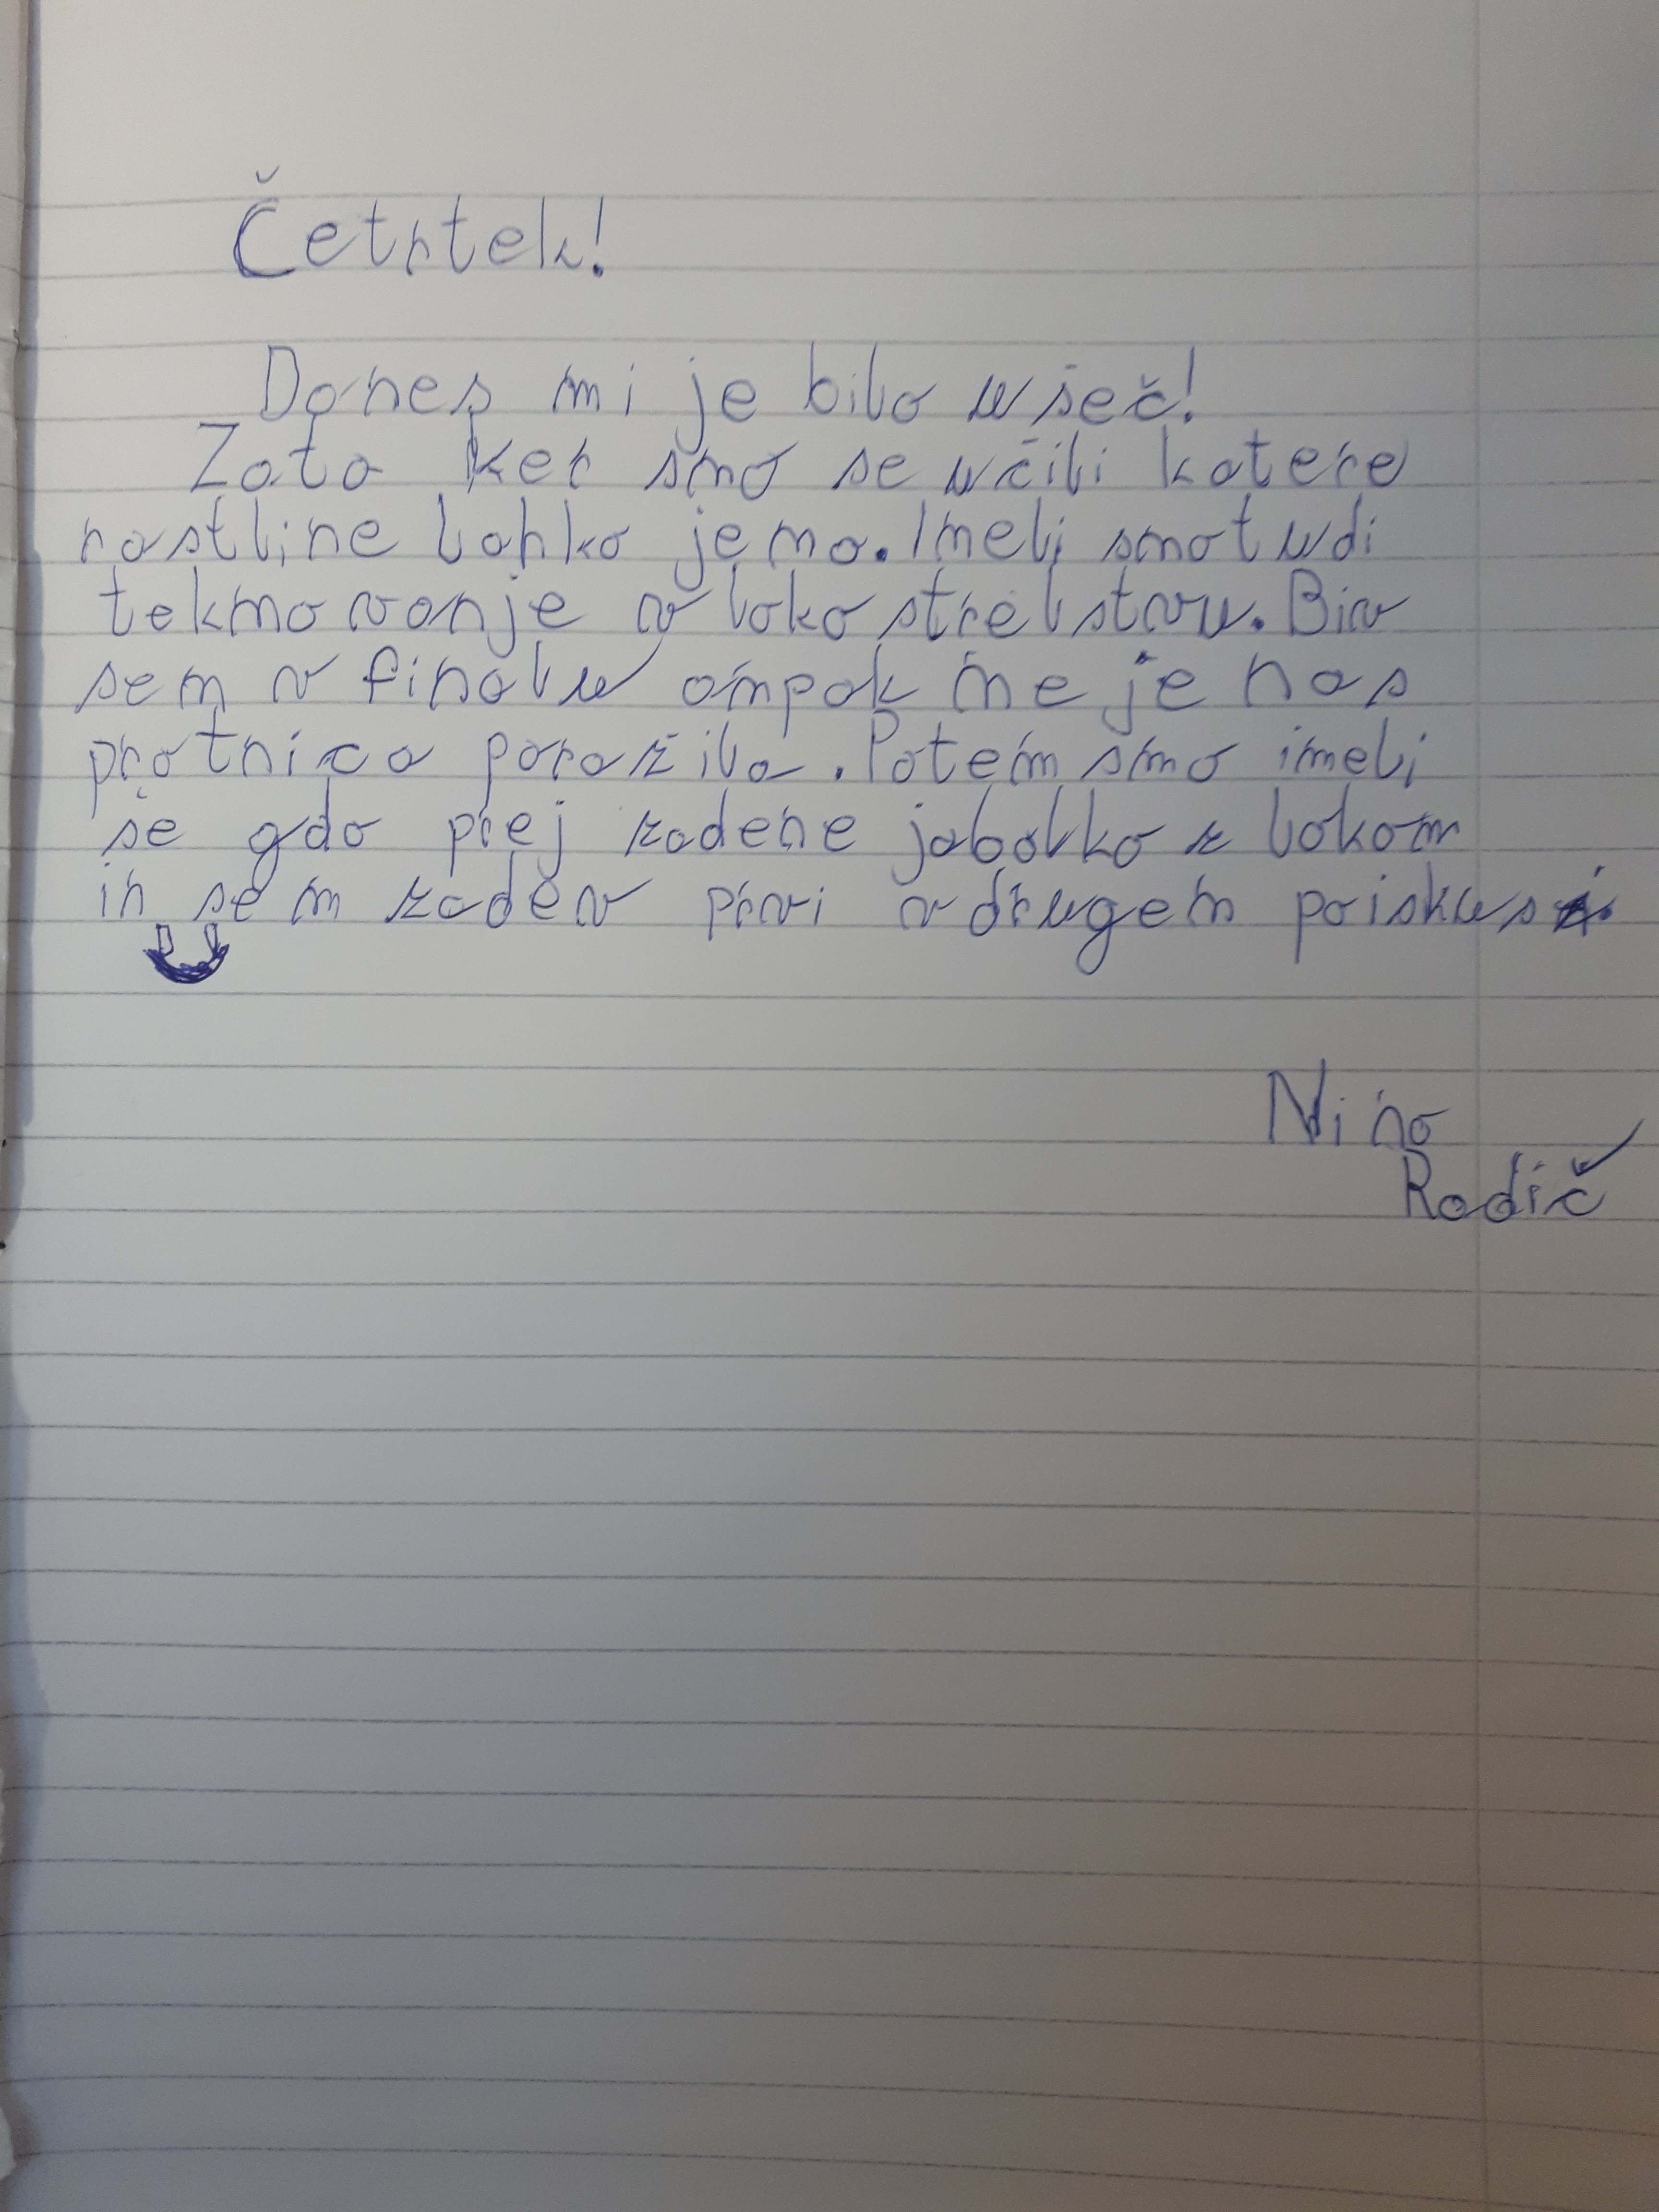 Četrtek!
Danes mi je bilo ušeč!
Zato ker smo se učili katere
rastline lahko jemo. Imeli smo tudi
tekmovanje v lokostrelstvu. Biv
sem v finalu ampak me je nas
protnica porazila. Potem smo imeli
še gdo prej zadene jabolko z lokom
in sem zadev prvi v drugem poiskusi.
Nino
Radič